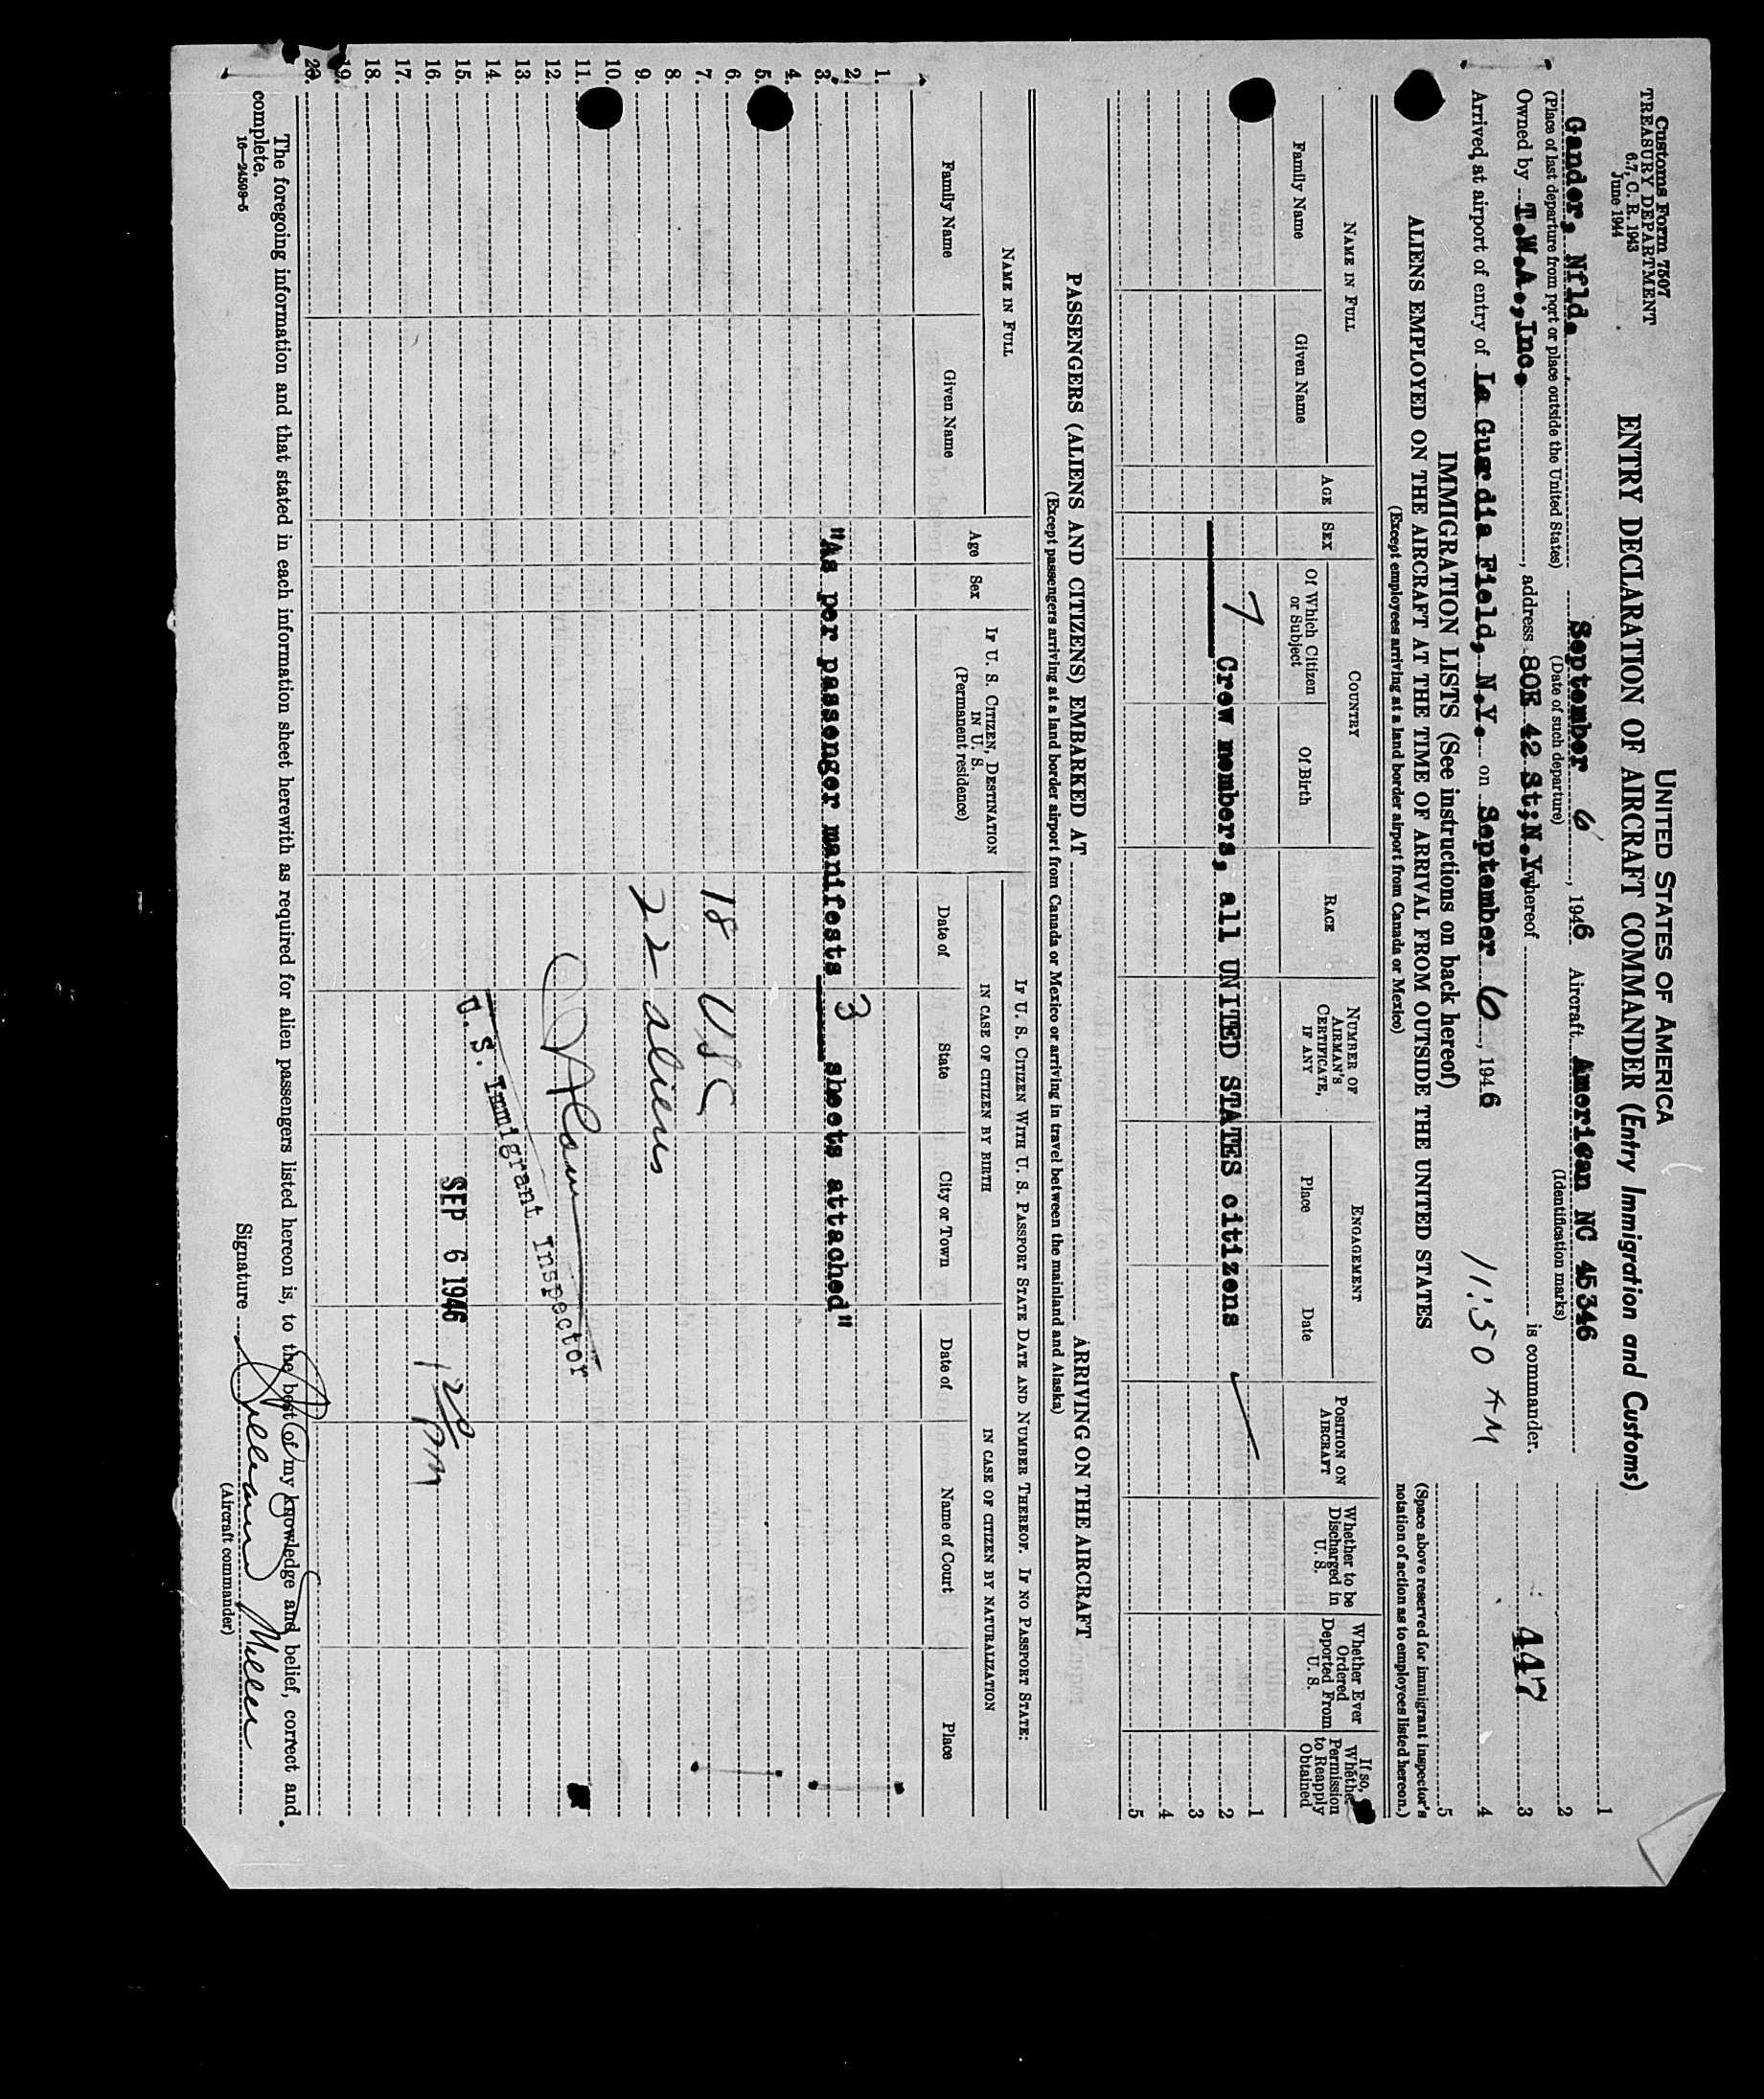 Customs Form 7507
TREASURY DEPARTMENT
6.7, C. R. 1943
June 1944
UNITED STATES OF AMERICA
ENTRY DECLARATION OF AIRCRAFT COMMANDER (Entry Immigration and Customs)
Gander, Nfld. September 6, 1946 Aircraft American NC 45346
(Place of last departure from port or place outside the United States) (Date of such departure) (Identification marks)
Owned by T.W.A.,Inc., address 80E 42 St;N.Y. whereof is commander.
Arrived at airport of entry of La Guardia Field, N.Y. on September 6, 1946 11:50 AM
1
2
3 447
4
5
IMMIGRATION LISTS (See instructions on back hereof)
ALIENS EMPLOYED ON THE AIRCRAFT AT THE TIME OF ARRIVAL FROM OUTSIDE THE UNITED STATES
(Except employees arriving at a land border airport from Canada or Mexico)
(Space above reserved for immigrant inspector's notation of action as to employees listed hereon.)
NAME IN FULL
Family Name
Given Name
AGE
SEX
COUNTRY
Of Which Citizen or Subject
Of Birth
RACE
NUMBER OF AIRMAN'S CERTIFICATE, IF ANY
ENGAGEMENT
Place
Date
POSITION ON AIRCRAFT
Whether to be Discharged in U. S.
Whether Ever Ordered Deported From U. S.
If so, Whether Permission to Reapply Obtained
1
7 Crew members, all UNITED STATES citizens
2
3
4
5
PASSENGERS (ALIENS AND CITIZENS) EMBARKED AT ARRIVING ON THE AIRCRAFT
(Except passengers arriving at a land border airport from Canada or Mexico or arriving in travel between the mainland and Alaska)
NAME IN FULL
Family Name
Given Name
Age
Sex
IF U. S. CITIZEN, DESTINATION IN U. S.
(Permanent residence)
IF U. S. CITIZEN WITH U. S. PASSPORT STATE DATE AND NUMBER THEREOF. IF NO PASSPORT STATE:
IN CASE OF CITIZEN BY BIRTH
Date of
State
City or Town
IN CASE OF CITIZEN BY NATURALIZATION
Date of
Name of Court
Place
1.
2.
3. "As per passenger manifests 3 sheets attached"
4.
5.
6.
7. 18 USC
8.
9. 22 aliens
10.
11.
12.
13.
14. U. S. Immigrant Inspector
15.
16. SEP 6 1946 1 20 PM
17.
18.
19.
20.
The foregoing information and that stated in each information sheet herewith as required for alien passengers listed hereon is, to the best of my knowledge and belief, correct and complete.
16—24508-5
Signature Miller
(Aircraft commander)